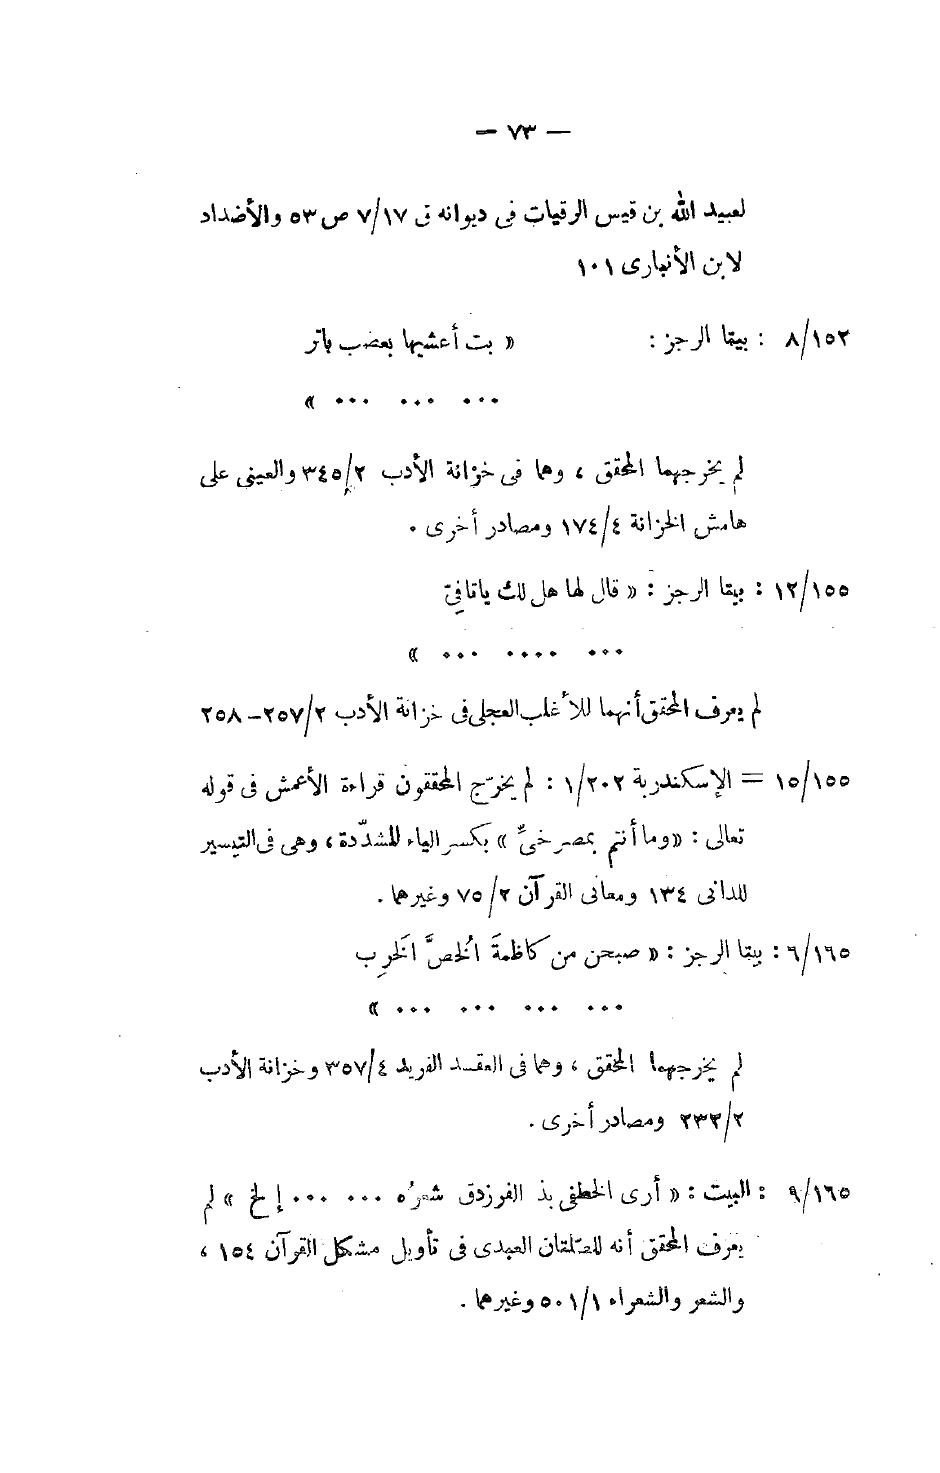 — ٧٣ —
لعبيد الله بن قيس الرقيات فى ديوانه ق ٧/١٧ ص ٥٣ والأضداد
لابن الأنبارى ١٠١
٨/١٥٢ : بيتا الرجز : « بت أعشيها بعضب باتر
... ... ... »
لم يخرجهما المحقق ، وهما فى خزانة الأدب ٣٤٥/٢ والعينى على
هامش الخزانة ١٧٤/٤ ومصادر أخرى .
١٢/١٥٥ : بيتا الرجز : « قال لها هل لك ياتافىِّ
... .... ... »
لم يعرف المحقق أنهما للأغلب العجلى فى خزانة الأدب ٢٥٧/٢ – ٢٥٨
١٥/١٥٥ = الإسكندرية ١/٢٠٢ : لم يخرّج المحققون قراءة الأعمش فى قوله
تعالى : «وما أنتم بمصرخىِّ » بكسر الياء المشدّدة ، وهى فى التيسير
للدانى ١٣٤ ومعانى القرآن ٧٥/٢ وغيرهما .
٦/١٦٥ : بيتا الرجز : « صبحن من كاظمةَ الخُصَّ الخَرِب
... ... ... ... »
لم يخرجهما المحقق ، وهما فى العقد الفريد ٣٥٧/٤ وخزانة الأدب
٢٣٣/٢ ومصادر أخرى .
٩/١٦٥ : البيت : « أرى الخطفى بذ الفرزدق شعرُه ... ... إلخ » لم
يعرف المحقق أنه للصّلتان العبدى فى تأويل مشكل القرآن ١٥٤ ،
والشعر والشعراء ٥٠١/١ وغيرهما .